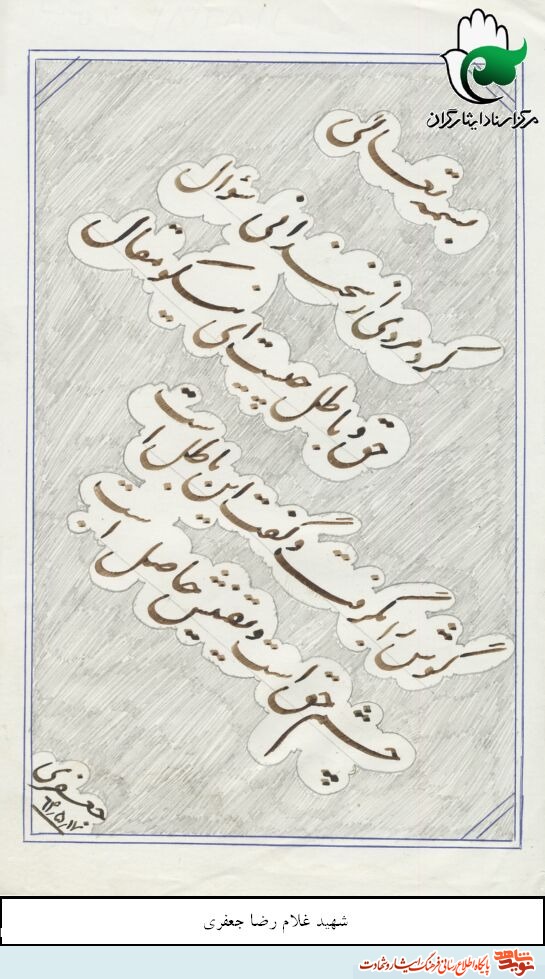 مرکز اسناد ایثارگران
بسمه تعالی
کرد مردی از سخندانی سؤال
حق و باطل چیست ای نیکو مقال
گوش را بگرفت و گفت این باطل است
چشم حق است و یقینش حاصل است
جعفری
شهید غلام رضا جعفری
نوید شاهد پایگاه اطلاع رسانی فرهنگ ایثار و شهادت